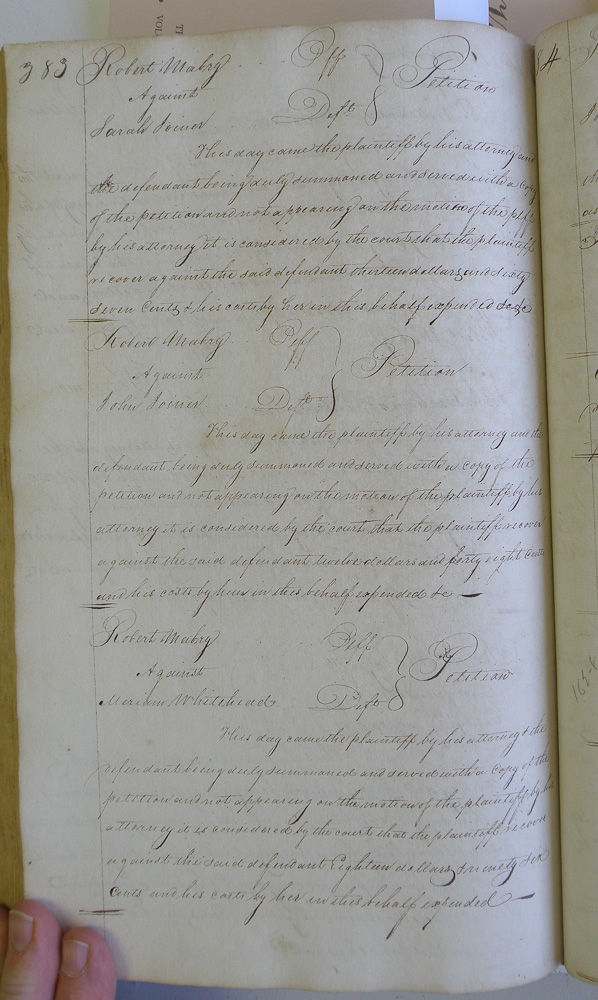 383
Robert Mabry Plff
Against Petition
Sarah Joiner Deft
This day came the plaintiff by his attorney and
the defendant being duly summoned and served with a copy
of the petition and not appearing on the motion of the plff
by his attorney it is considered by the court that the plaintiff
recover against the said defendant thirteen dollars and sixty
seven Cents & his costs by her in this behalf expended &c
Robert Mabry Plff
Against Petition
John Joiner Deft
This day came the plaintiff by his attorney and the
defendant being duly summoned and served with a copy of the
petition and not appearing on the motion of the plaintiff by his
attorney it is considered by the court that the plaintiff recover
against the said defendant twelve dollars and forty eight Cents
and his costs by him in this behalf expended &c
Robert Mabry Plff
Against Petition
Meriam Whitehead Deft
This day came the plaintiff by his attorney & the
defendant being duly summoned and served with a Copy of the
petition and not appearing on the motion of the plaintiff by his
attorney it is considered by the court that the plaintiff recover
against the said defendant Eighteen dollars & ninety six
Cents and his costs by her in this behalf expended